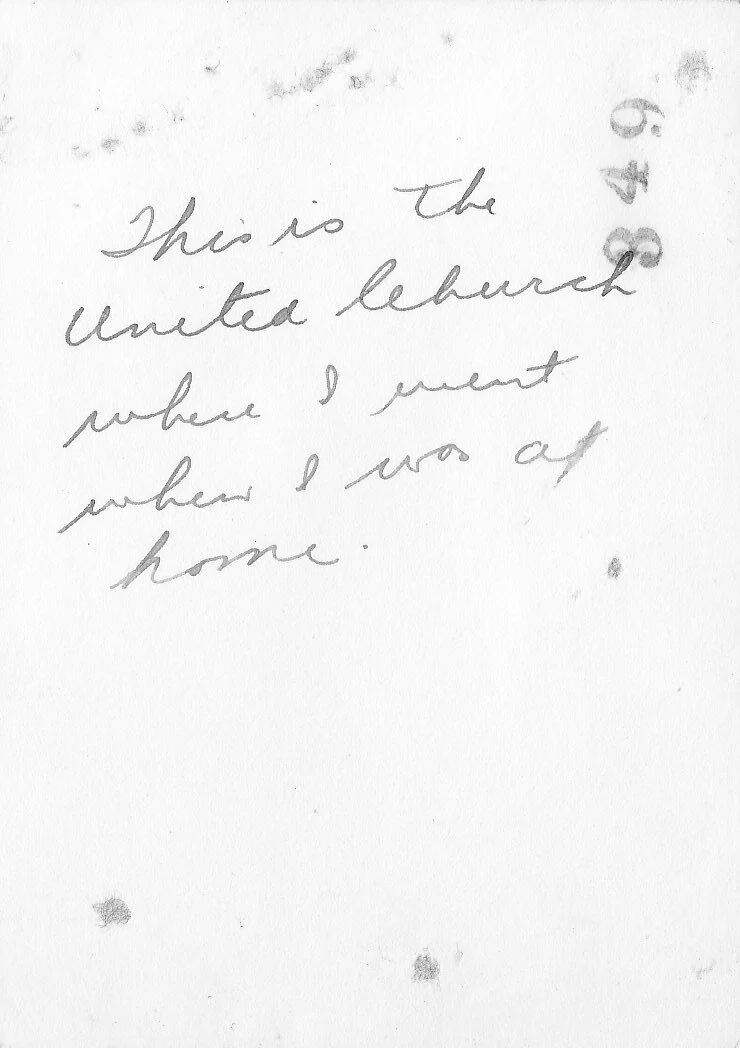 This is the
United Church
where I went
when I was at
home.
849